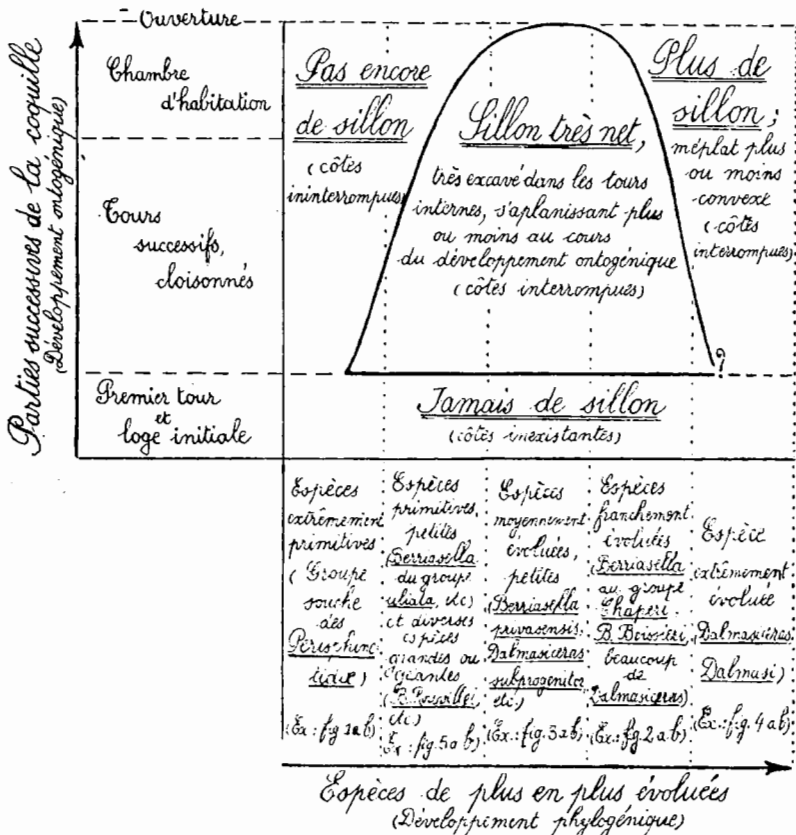 Ouverture
Parties successives de la coquille
(Développement ontogénique)
Chambre
d'habitation
Tours
successifs,
cloisonnés
Premier tour
et
loge initiale
Pas encore
de sillon
(côtes
ininterrompues)
Sillon très net,
très excavé dans les tours
internes, s'aplanissant plus
ou moins au cours
du développement ontogénique
(côtes interrompues)
Plus de
sillon;
méplat plus
ou moins
convexe
(côtes
interrompues)
?
Jamais de sillon
(côtes inexistantes)
Espèces
extrêmement
primitives
(Groupe
souche
des
Périsphinc-
tidae)
(Ex: fig 1 a b)
Espèces
primitives,
petites
(Berriasella
du groupe
ciliata, etc)
et diverses
espèces
grandes ou
géantes
etc)
Ex: fig. 5 a b)
Espèces
moyennement
évoluées,
petites
(Berriasella
privasensis,
Dalmasiceras
subprogenitor,
etc.)
(Ex.: fig. 3 a b)
Espèces
franchement
évoluées
(Berriasella
au groupe
Chaperi,
B. Boissieri,
beaucoup
de
Dalmasiceras)
(Ex.: fig. 2 a b)
Espèce
extrêmement
évoluée
(Dalmasiceras
Dalmasi)
(Ex: fig. 4 a b)
Espèces de plus en plus évoluées
(Développement phylogénique)